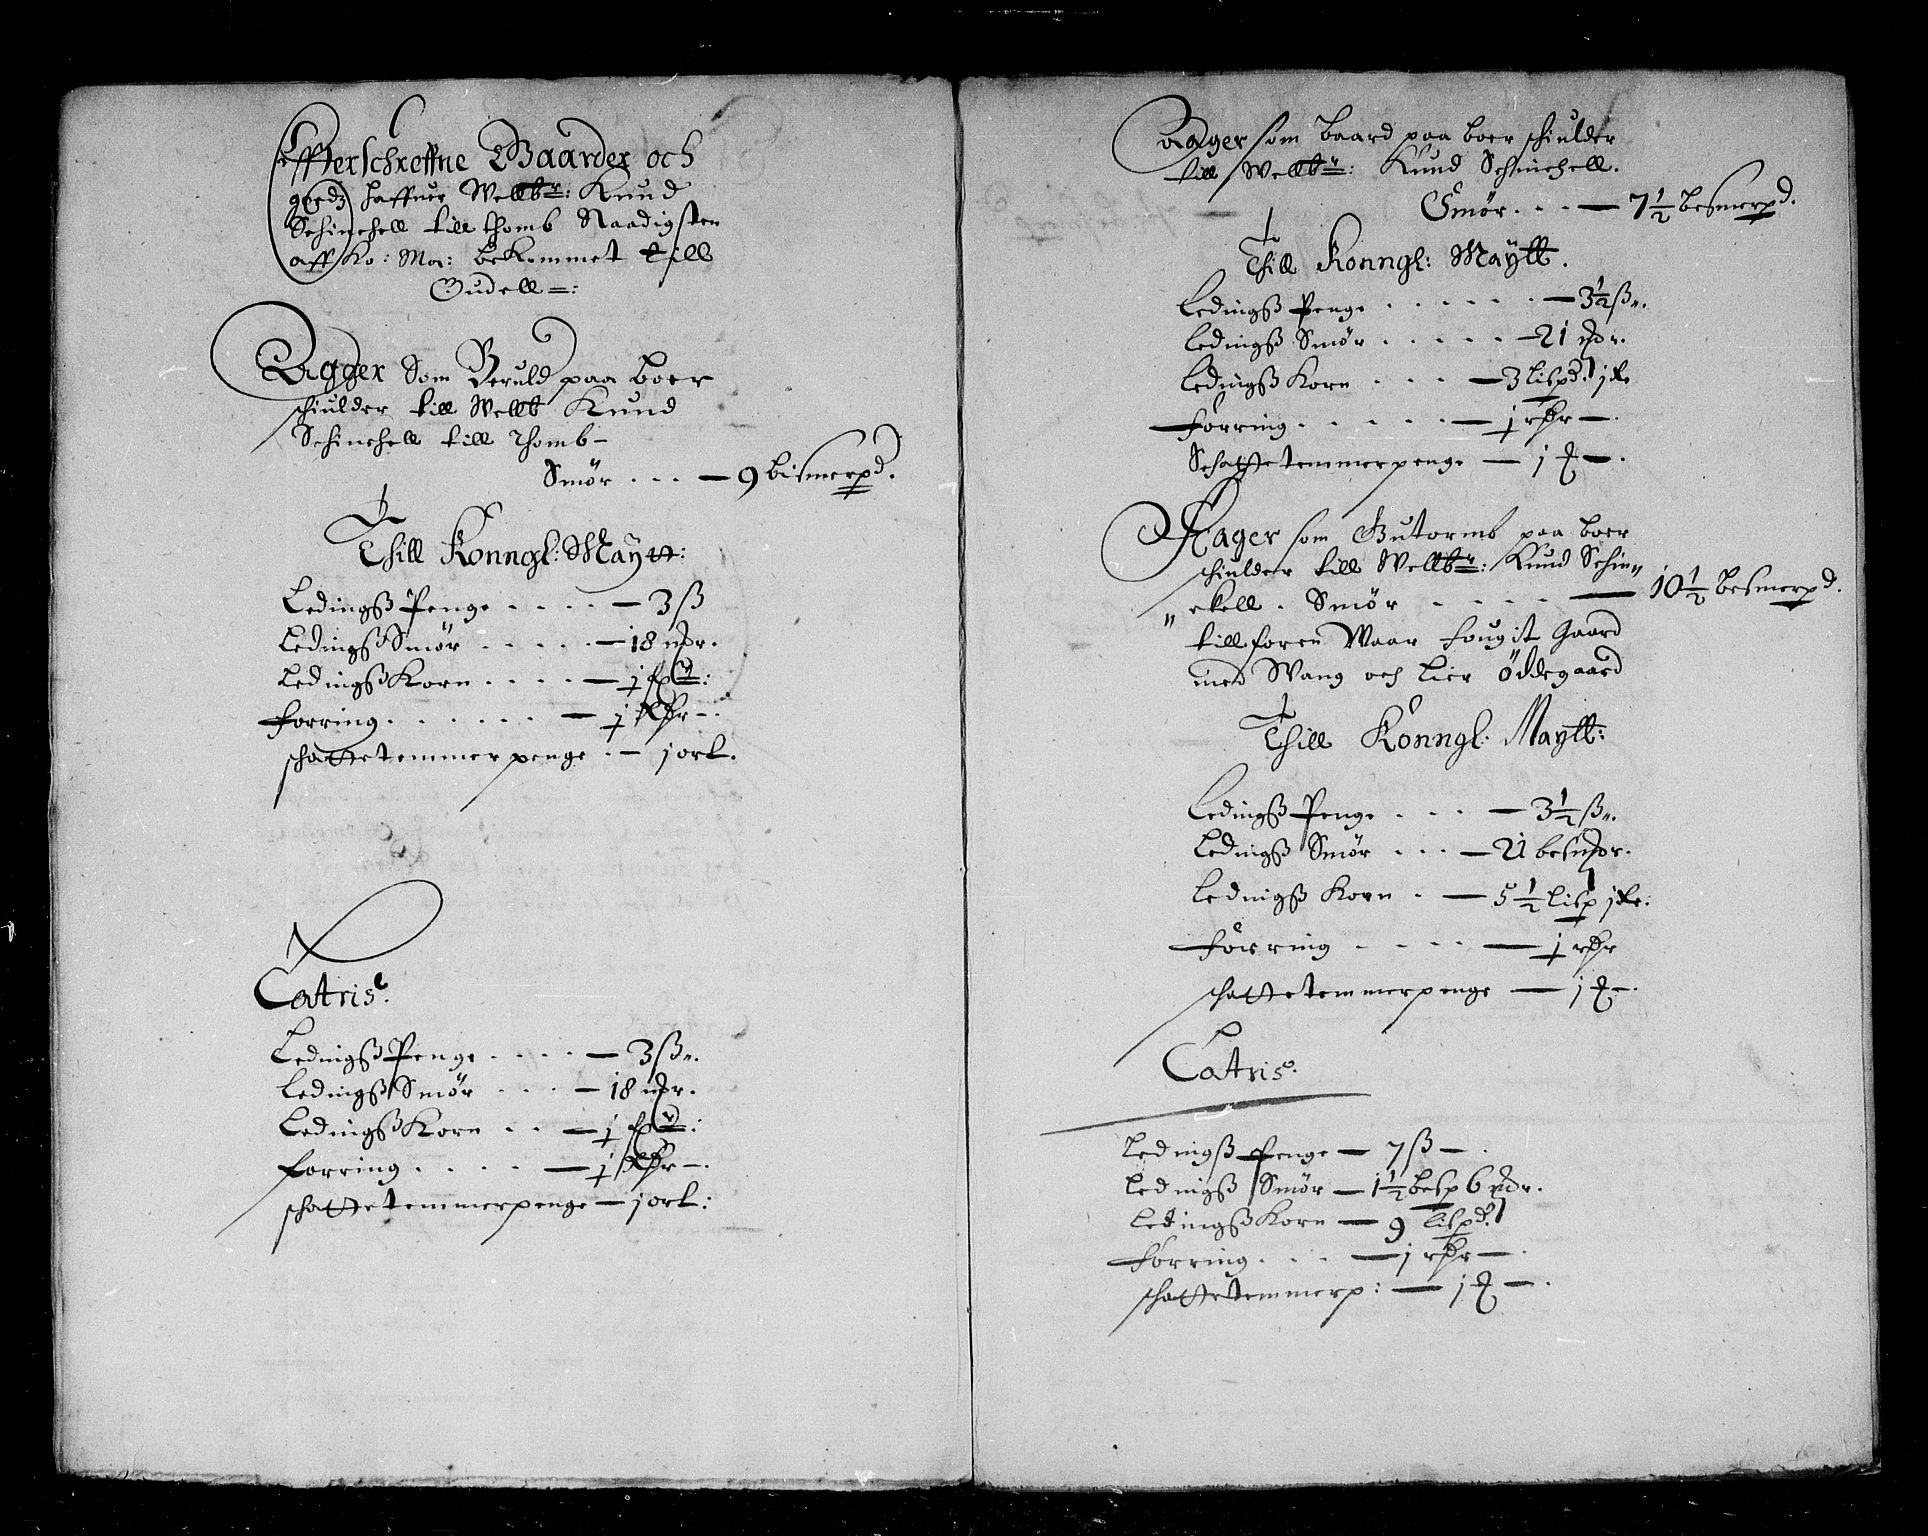 Effterschreffne Gaarder och
godz haffuer Wellbr: Knud
Schinckell till thomb Naadigsten
aff Ko: Ma: bekommet till
Oudell =:
Agger Som Beruld paa boer
schiulder till Wellb Knud
Schinchell till Thomb –
Smør . . . – 9 bismerpd.
Thill Konngl: Maytt:
Ledingß Penge . . . . – 3 ß
Ledingß Smør . . . . . – 18 mkr.
Ledingß Korn . . . . . – j
forring . . . . . . – j
schattetemmerpenge . – j ort.
Catris.
Ledingß Penge . . . . – 3 ß.
Ledingß Smør . . . . – 18 mkr.
Ledingß Korn . . . – j
forring . . . . – j
schattetemmerpenge – j ort:
Aager som baard paa boer schiulder
till Wellbr: Knud Schinchell.
Smør . . . – 7½ besmerpd.
Thill Konngl: Maytt.
Ledingß Penge . . . . . . – 3½ ß.
Ledingß Smør . . . . . – 21 mkr.
Ledingß Korn . . . – 3 lispd.
forring . . . . . . – j
Schattetemmerpenge – j
Aager som Gutormb paa boer
schiulder till Wellbr: Knud Schin„
„ ckell . Smør . . . . – 10½ besmerpd.
till foren Waar Gaard
med Wang och Lier Øddegaard
Thill Konngl: Maytt:
Ledingß Penge . . . – 3½ ß.
Ledingß Smør . . . – 21 besmkr.
Ledingß Korn . – 5½ lisp
forring . . . . – j
schattetemmerpenge – j
Catris.
Ledingß Penge – 7 ß – .
Ledingß Smør – 1½ besp 6 mkr.
Ledingß Korn – 9 lispd.
forring . . . – j
schattetemmerp: – j